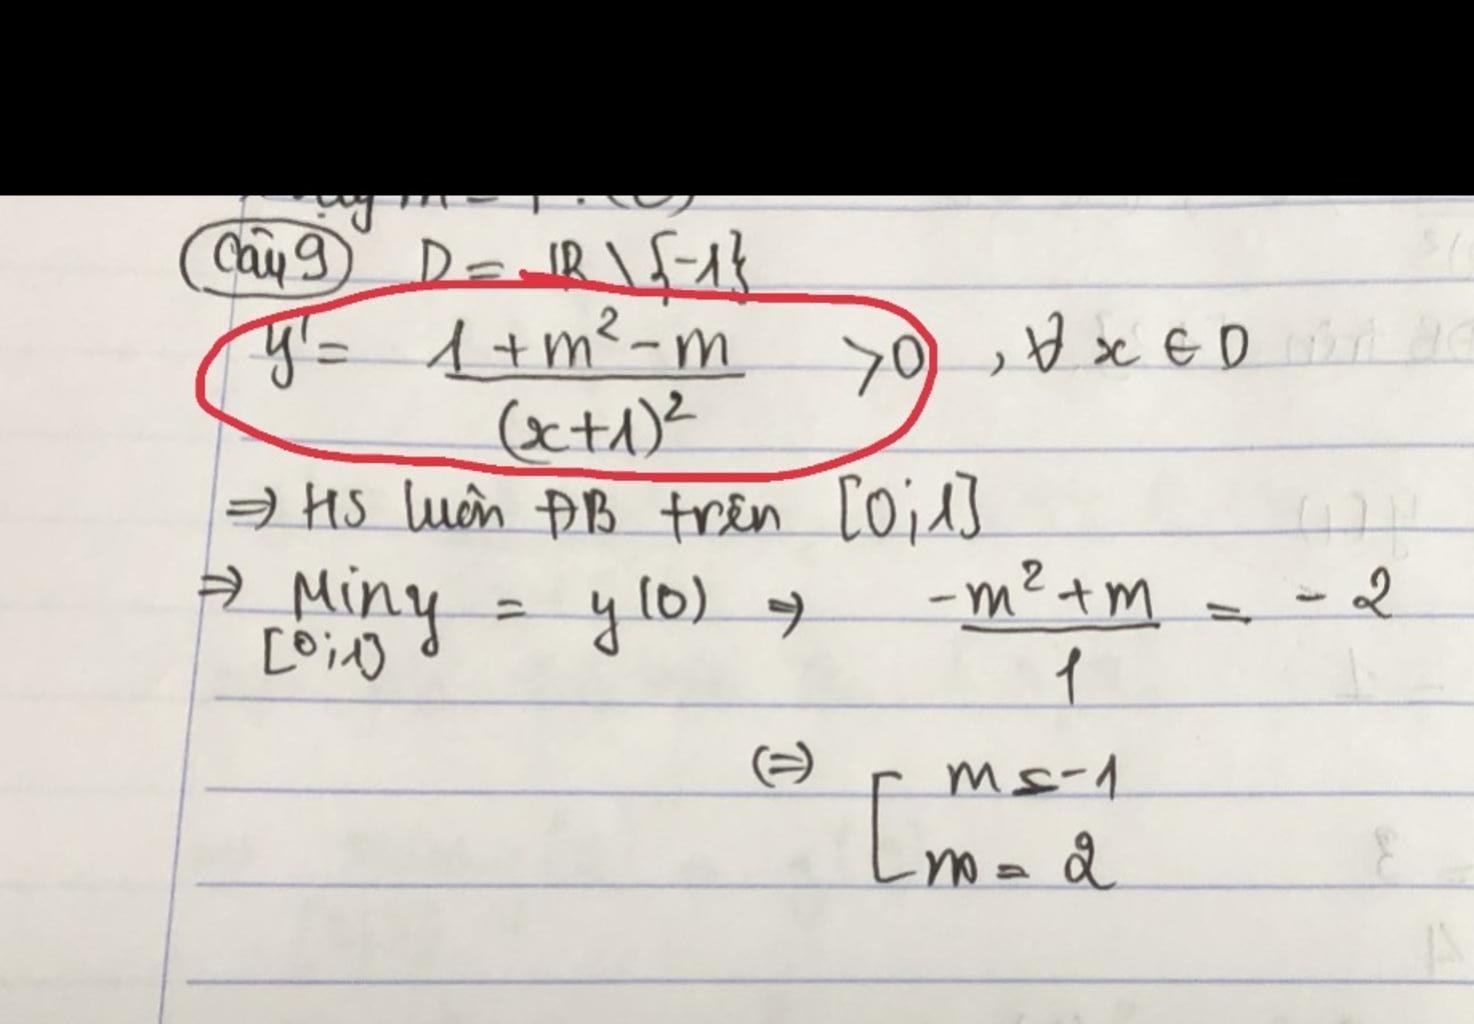 Câu 9 D = ℝ \ {-1}
y' = (1 + m² - m) / (x+1)² > 0 , ∀ x ∈ D
⇒ HS luôn ĐB trên [0;1]
⇒ Min y = y(0) ⇒ (-m² + m) / 1 = -2
[0;1]
⇔ [ m = -1
m = 2